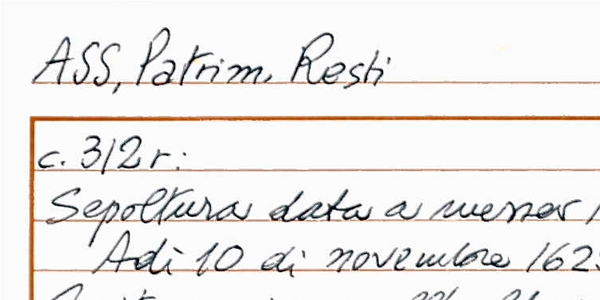 ASS, Patrim. Resti
c. 312r:
Sepoltura data a messer
Adì 10 di novembre 162